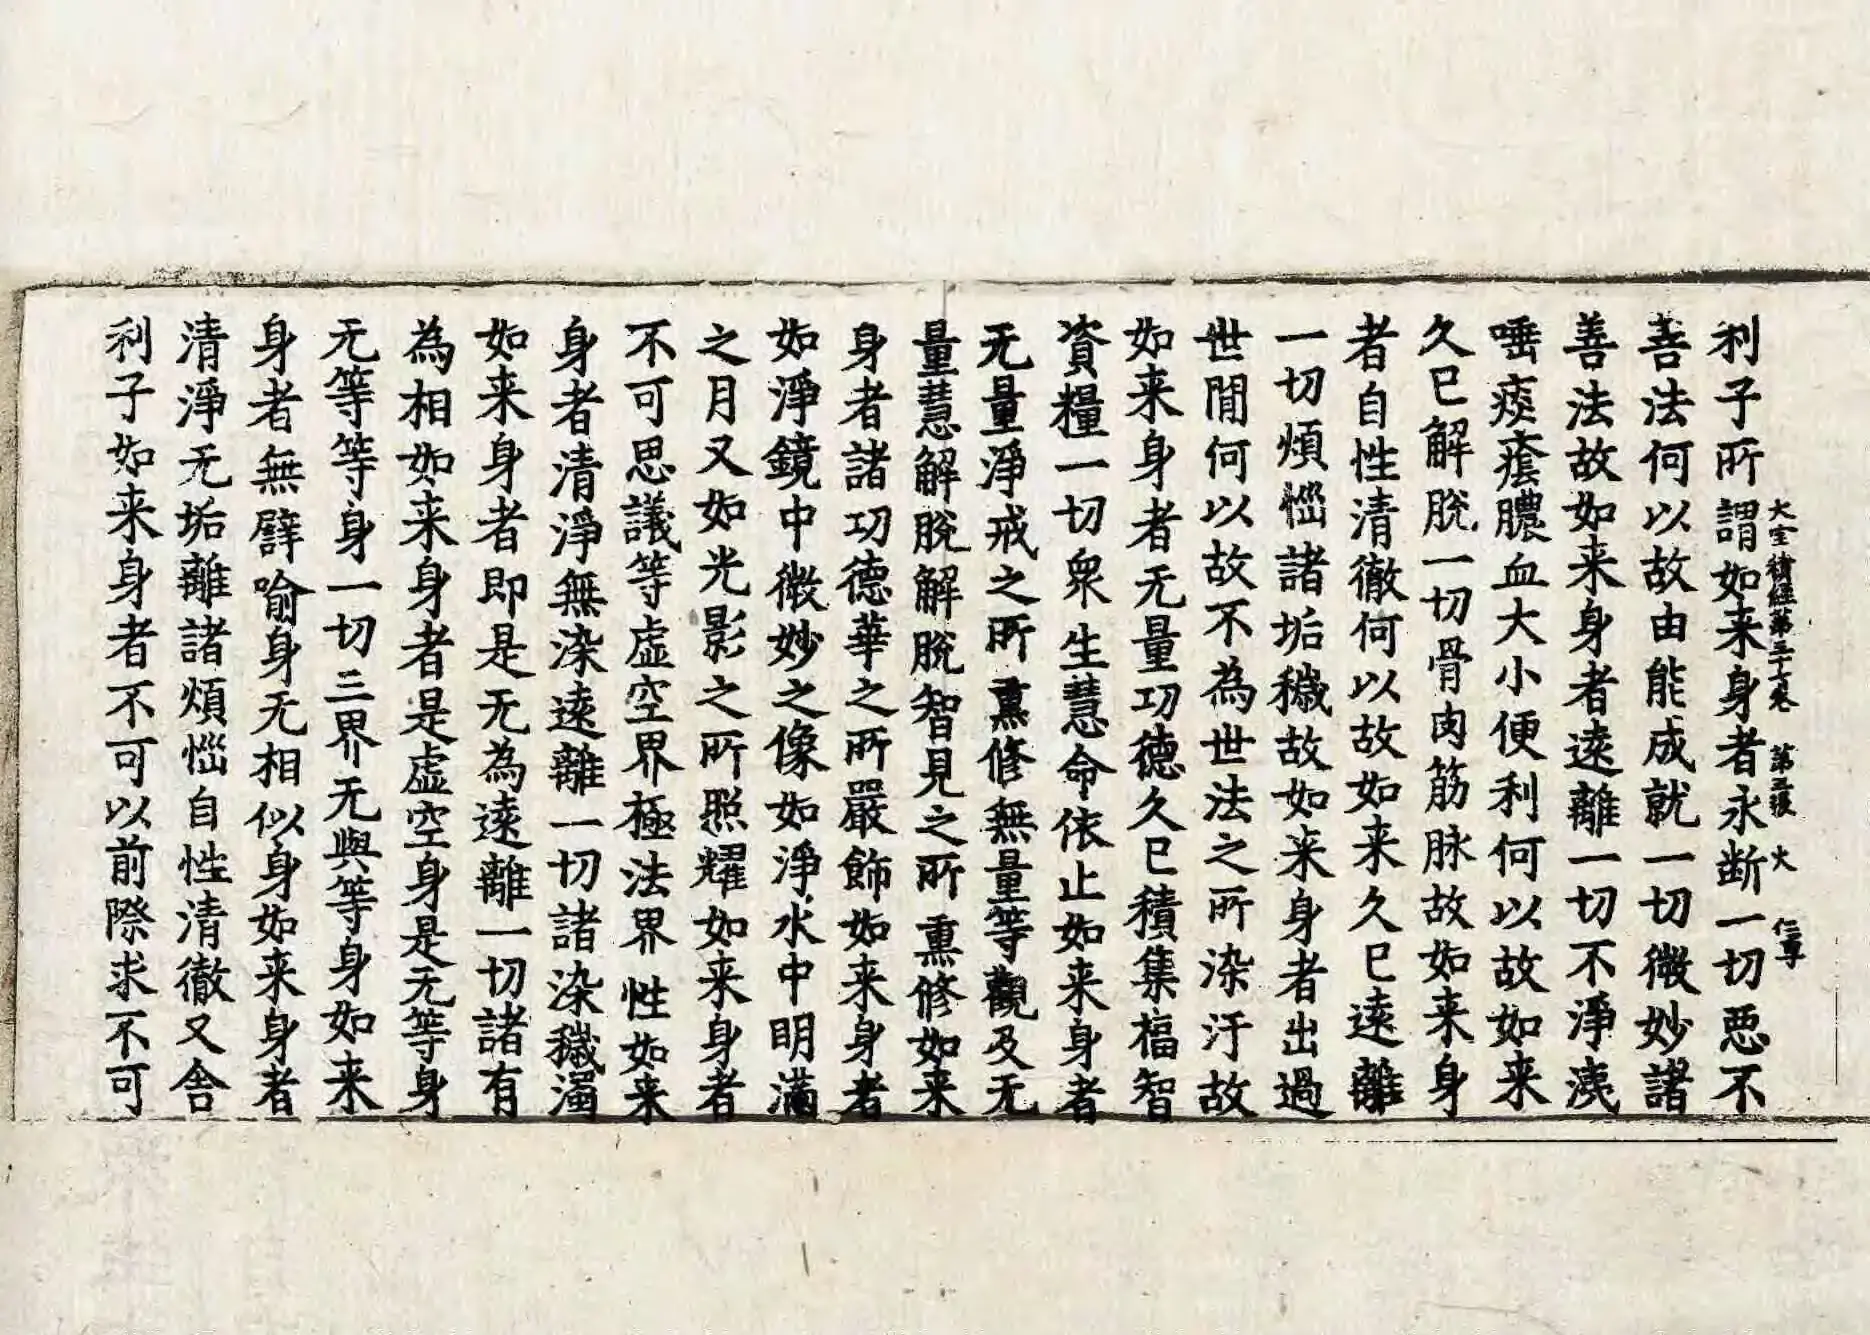 大宝積経第三十七卷 第五張 火
利子所謂如来身者永断一切惡不
善法何以故由能成就一切微妙諸
善法故如来身者遠離一切不淨洟
唾痰癊膿血大小便利何以故如来
久已解脫一切骨肉筋脉故如来身
者自性清徹何以故如来久已遠離
一切煩惱諸垢穢故如来身者出過
世間何以故不為世法之所染汙故
如来身者无量功德久已積集福智
資糧一切衆生慧命依止如来身者
无量淨戒之所熏修無量等觀及无
量慧解脫解脫智見之所熏修如来
身者諸功德華之所嚴飾如来身者
如淨鏡中微妙之像如淨水中明滿
之月又如光影之所照耀如来身者
不可思議等虛空界極法界性如来
身者清淨無染遠離一切諸染穢濁
如来身者即是无為遠離一切諸有
為相如来身者是虛空身是无等身
无等等身一切三界无與等身如来
身者無譬喻身无相似身如来身者
清淨无垢離諸煩惱自性清徹又舍
利子如来身者不可以前際求不可